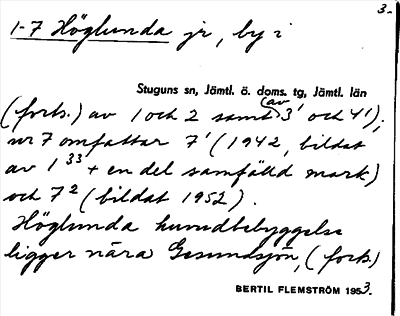 3.
1-7 Höglunda jr, by i
Stuguns sn, Jämtl. ö. doms. tg, Jämtl. län
(forts.) av 1 och 2 samt (av 3¹ och 4¹);
nr 7 omfattar 7¹ (1942, bildat
av 1³³ + en del samfälld mark)
och 7² (bildat 1952).
Höglunda huvudbebyggelse
ligger nära Gesundsjön, (forts.)
BERTIL FLEMSTRÖM 1953.